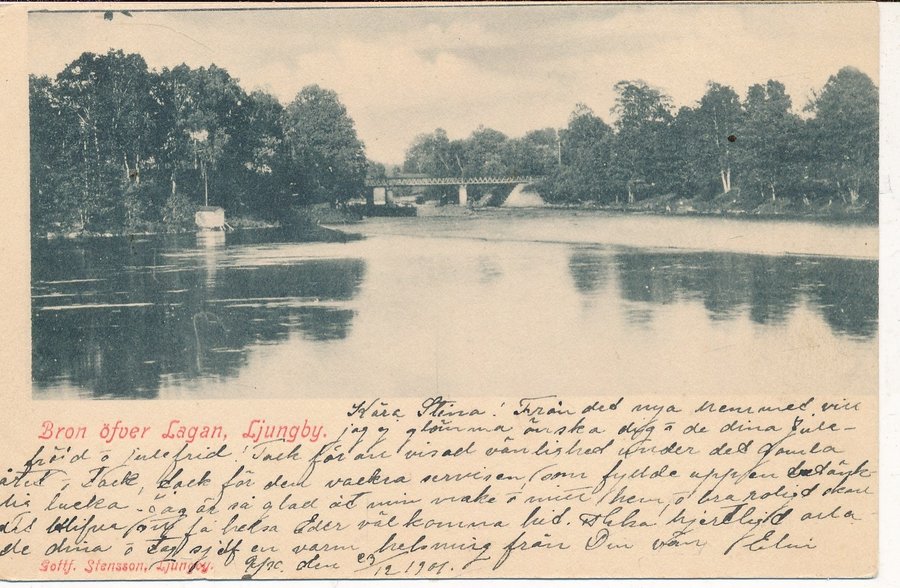 Kära Stina! Från det nya hemmet vill
Bron öfver Lagan, Ljungby.
jag ej glömma önska dig o de dina Jule-
fröjd o julefrid! Tack för all visad vänlighet under det gamla
året. Tack, tack för den vackra servisen, som fyllde uppen
lucka. Jag är så glad åt min make o mitt hem, o bra roligt skall
det blifva få helsa Eder välkomna hit. hjertligt
de dina o Dig sjelf en varm helsning från Din vän Elin
den 23/12 1901.
Gottf. Stensson, Ljungby.